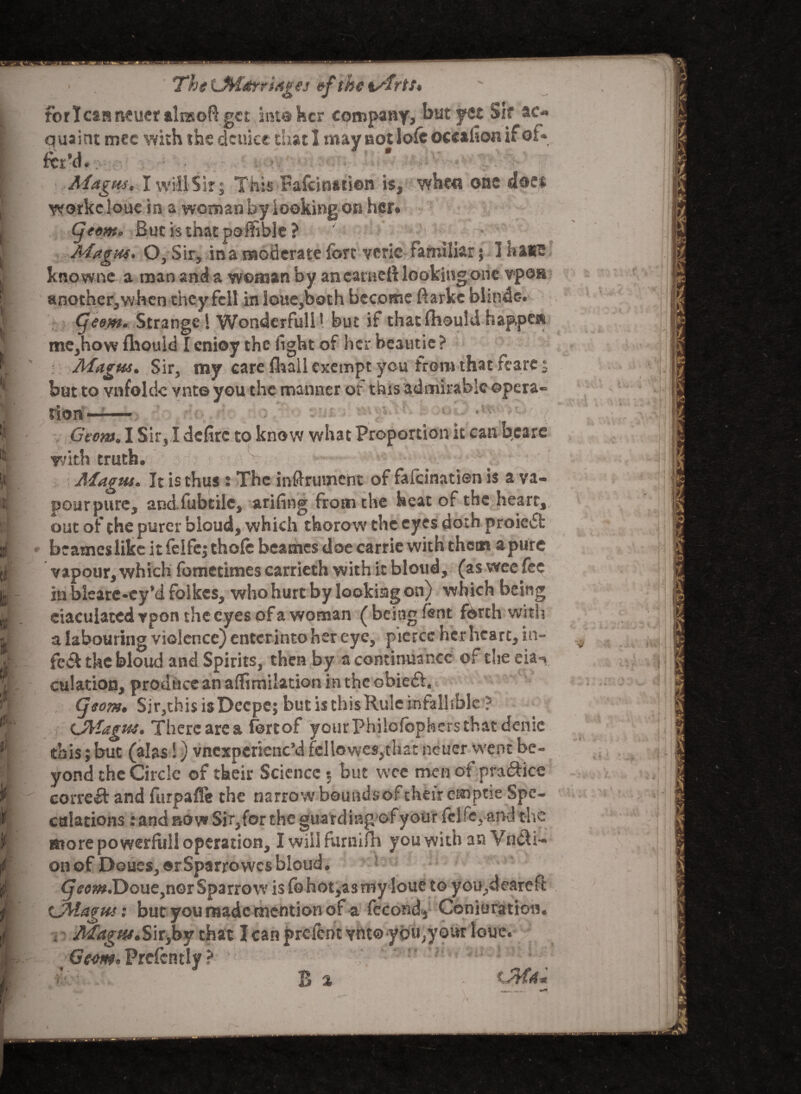 The Marriages of the Arts.
for I can neuer almost get into her company, but yet Sir ac-
quaint mee with the deuice that I may not lose occasion if of-
fer'd.
Magus. I will Sir; This Fascination is, when one does
worke loue in a woman by looking on her.
Geom. But is that possible?
Magus. O, Sir, in a moderate sort verie familiar; I haue
knowne a man and a woman by an earnest looking one vpon
another, when they fell in loue, both become starke blinde.
Geom. Strange! Wonderfull! but if that should happen
me, how should I enioy the sight of her beautie?
Magus. Sir, my care shall exempt you from that feare;
but to vnfolde vnto you the manner of this admirable opera-
tion——
Geom. I Sir, I desire to know what Proportion it can beare
with truth.
Magus. It is thus: The instrument of fascination is a va-
pour pure, and subtile, arising from the heat of the heart,
out of the purer bloud, which thorow the eyes doth proiect
beames like it selfe; those beames doe carrie with them a pure
vapour, which sometimes carrieth with it bloud, (as wee see
in bleare-ey'd folkes, who hurt by looking on) which being
eiaculated vpon the eyes of a woman (being sent forth with
a labouring violence) enter into her eye, pierce her heart, in-
fect the bloud and Spirits, then by a continuance of the eia-
culation, produce an assimilation in the obiect.
Geom. Sir, this is Deepe; but is this Rule infallible?
Magus. There are a sort of your Philosophers that denie
this; but (alas!) vnexperienc'd fellowes, that neuer went be-
yond the Circle of their Science; but wee men of practice
correct and surpasse the narrow bounds of their emptie Spe-
culations: and now Sir, for the guarding of your selfe, and the
more powerfull operation, I will furnish you with an Vncti-
on of Doues, or Sparrowes bloud.
Geom. Doue, nor Sparrow is so hot, as my loue to you, dearest
Magus: but you made mention of a second, Coniuration.
Magus. Sir, by that I can present vnto you, your loue.
Geom. Presently?
B 2 Ma-